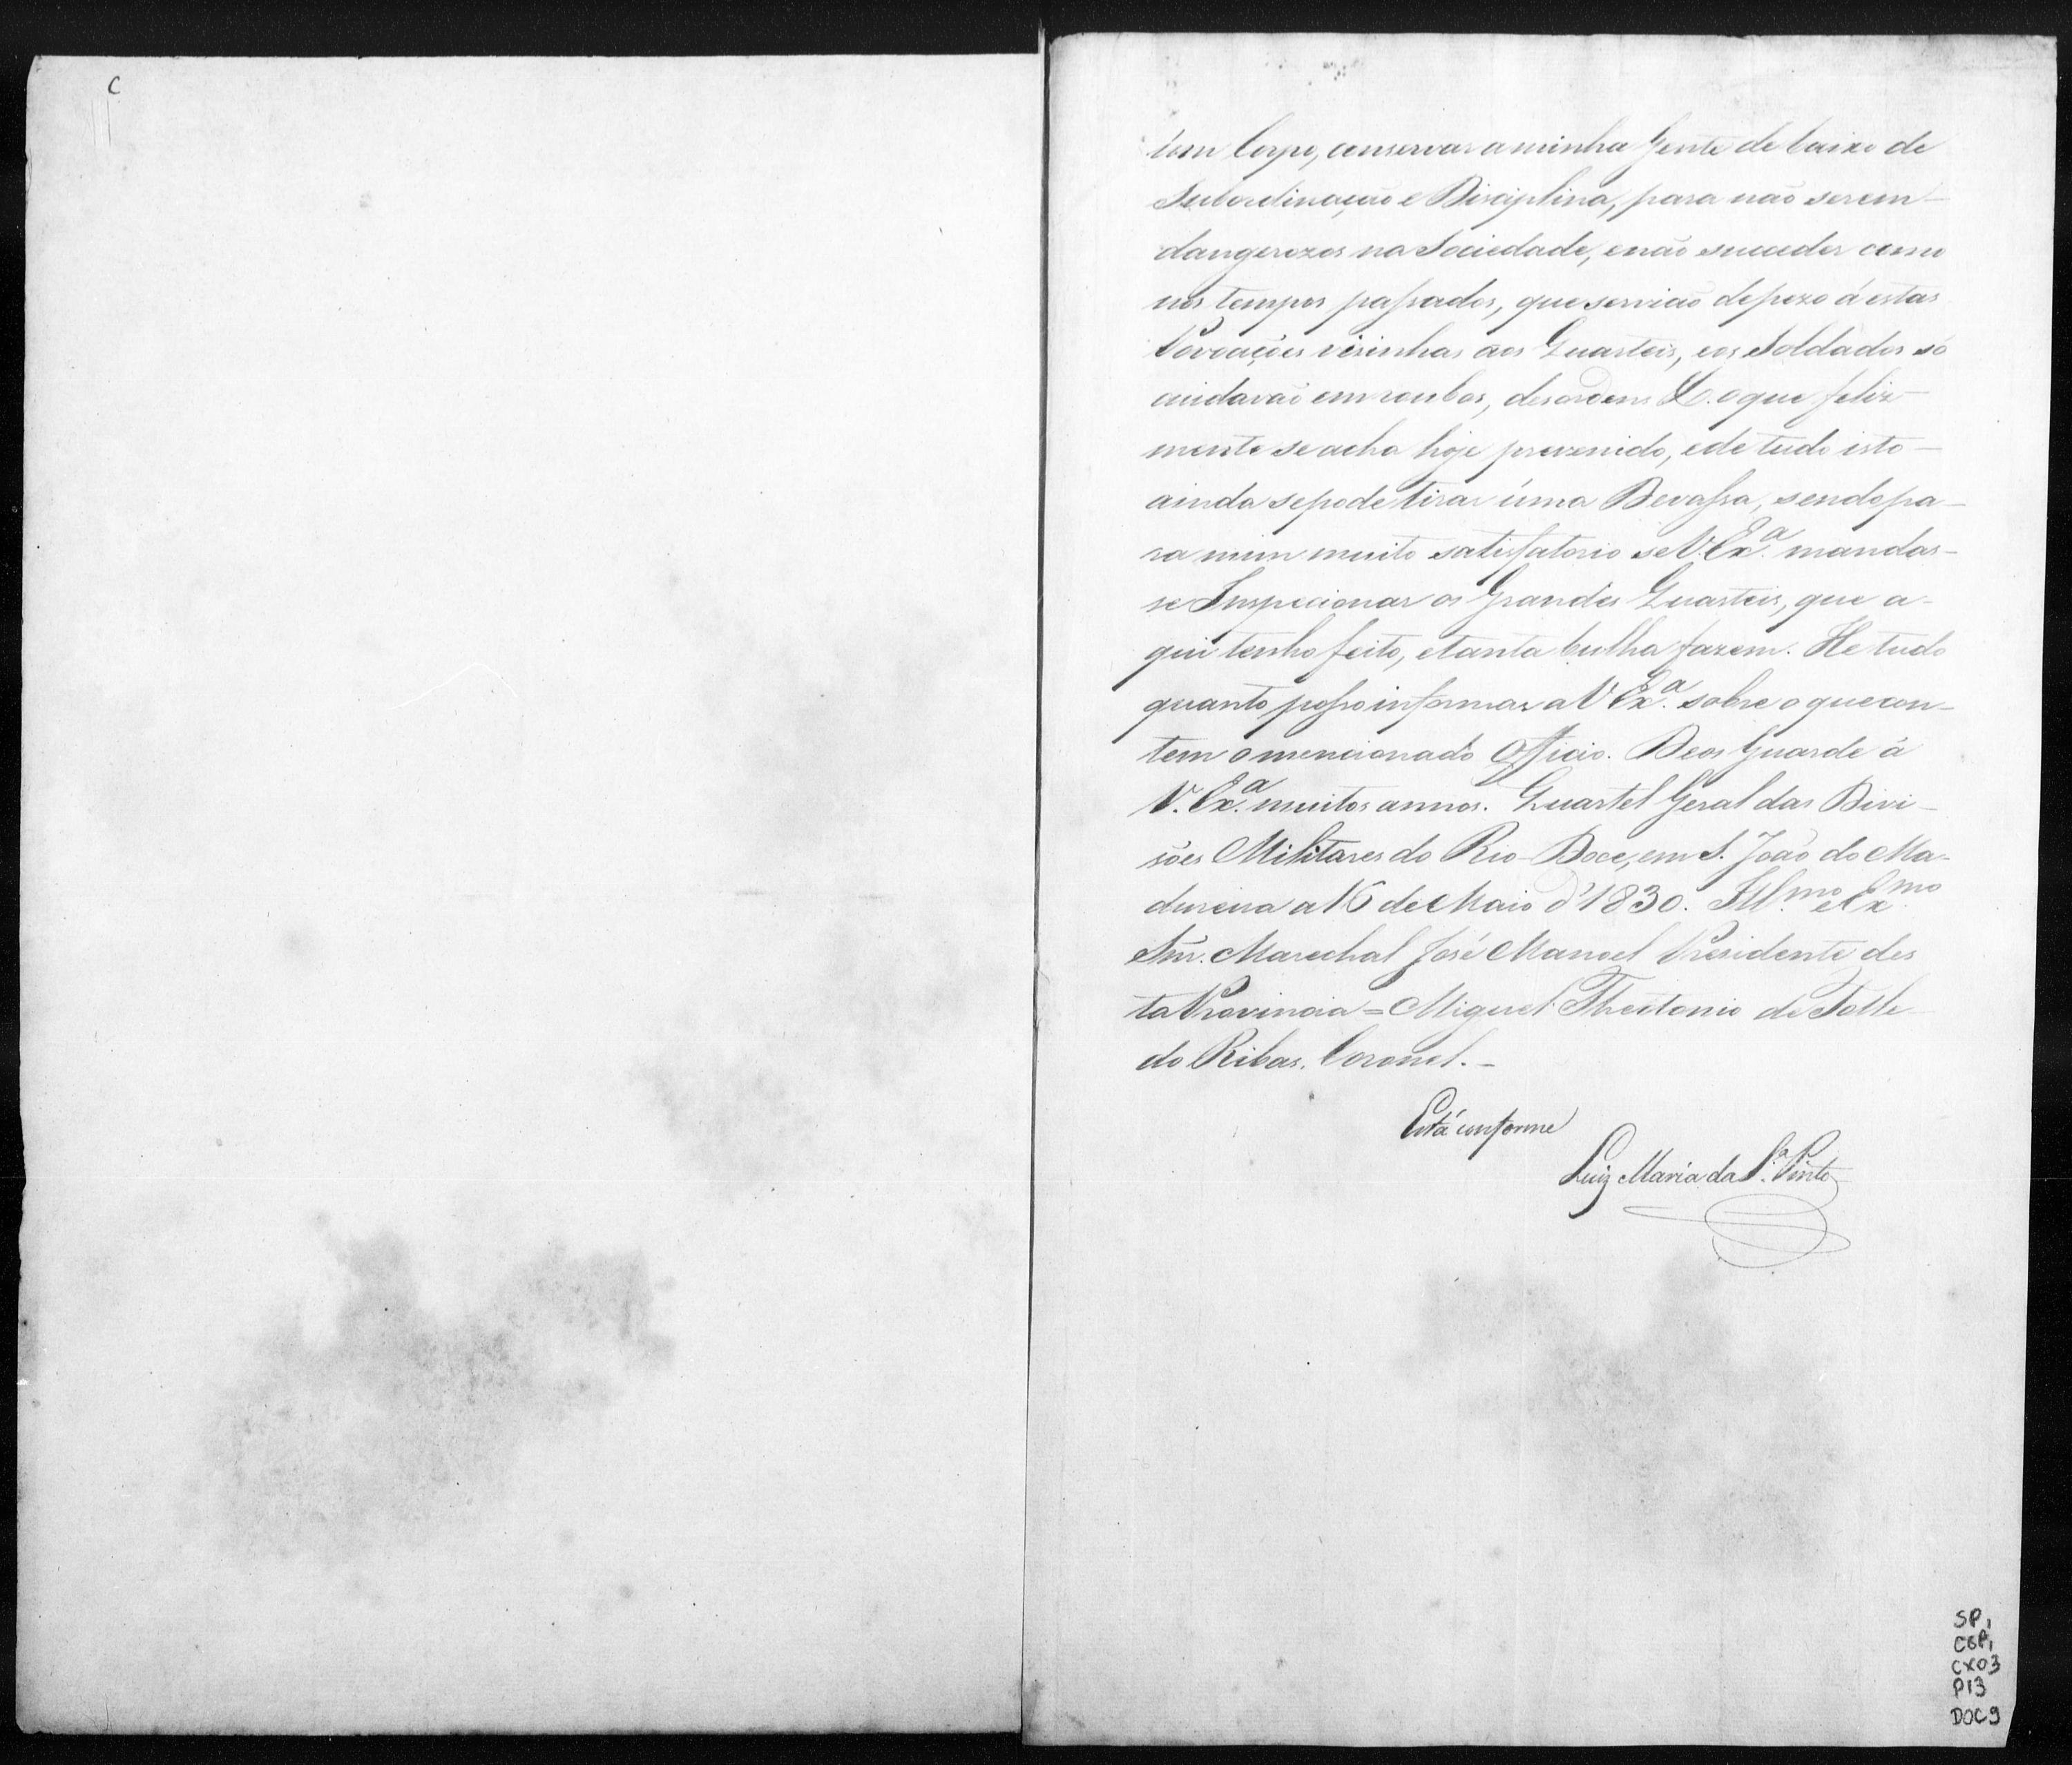 C
úm Corpo, conservar a minha Gente debaixo de
Subordinação e Disciplina, para não serem
dangerozos na Sociedade, e não succeder como
nos tempos passados, que servião de pezo á estas
Povoações visinhas aos Quarteis, e os Soldados só
cuidavão em roubos, desordens &. o que feliz-
mente se acha hoje prevenido, e de tudo isto
ainda se pode tirar úma Devassa, sendo pa-
ra mim muito satisfatorio se V. Ex.ª mandas-
se Inspecionar os Grandes Quarteis, que a-
qui tenho feito, e tanta bulha fazem. He tudo
quanto posso informar a V Ex.ª sobre o que con-
tem o mencionado Officio. Deos Guarde á
V. Ex.ª muitos annos. Quartel Geral das Divi-
sões Militares do Rio Doce, em S. João do Ma-
dureira a 16 de Maio d'1830. Ill.mo e Ex.mo
Snr. Marechal José Manoel Presidente des
ta Provincia = Miguel Theotonio de Tolle
do Ribas. Coronel. -
Está conforme
Luiz Maria da S.ª Pinto
SP,
CGP,
CX03
P13
DOC9